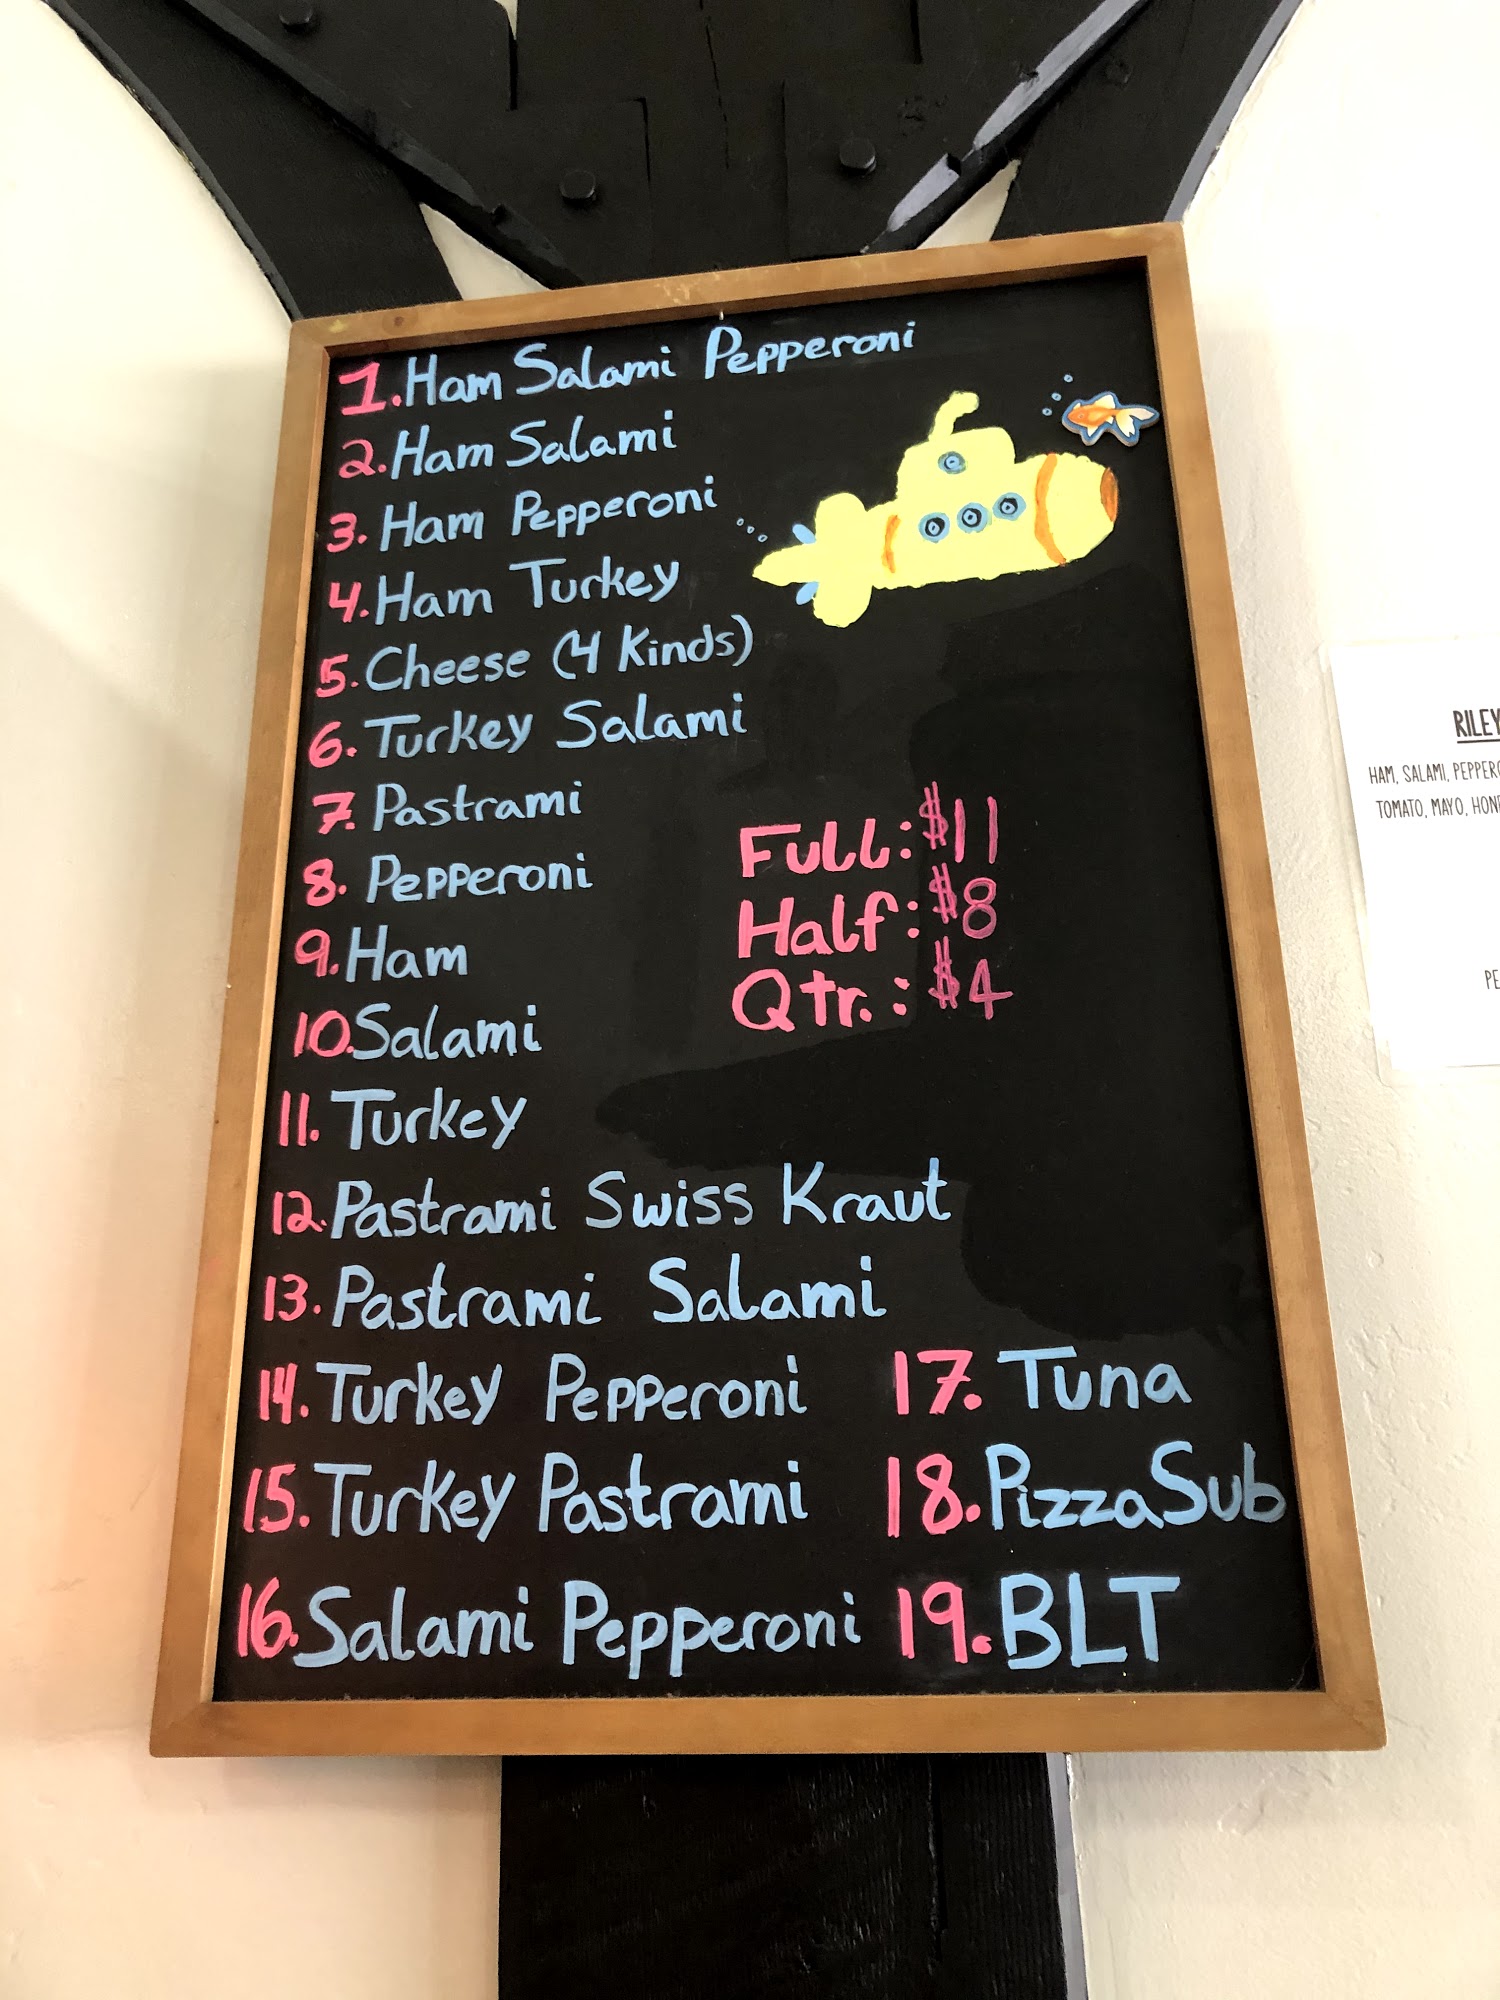 1. Ham Salami Pepperoni
2. Ham Salami
3. Ham Pepperoni
4. Ham Turkey
5. Cheese (4 Kinds)
6. Turkey Salami
7. Pastrami
8. Pepperoni
9. Ham
10. Salami
11. Turkey
12. Pastrami Swiss Kraut
13. Pastrami Salami
14. Turkey Pepperoni
15. Turkey Pastrami
16. Salami Pepperoni
17. Tuna
18. Pizza Sub
19. BLT
Full: $11
Half: $8
Qtr.: $4
RILEY
HAM, SALAMI,
TOMATO, MAYO,